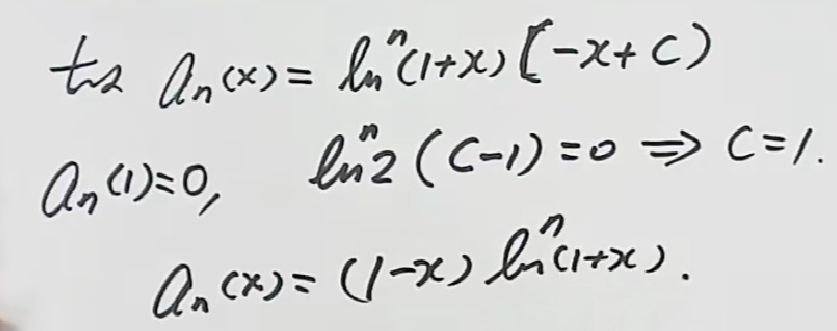 故 aₙ(x) = lnⁿ(1+x) [-x+C)
aₙ(1)=0, lnⁿ2 (C-1)=0 ⇒ C=1.
aₙ(x) = (1-x) lnⁿ(1+x).